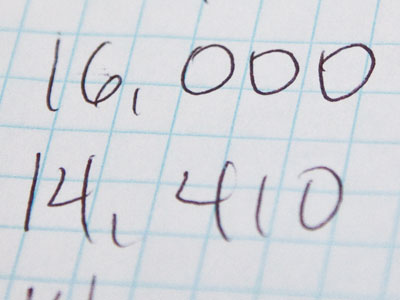 16,000
14,410